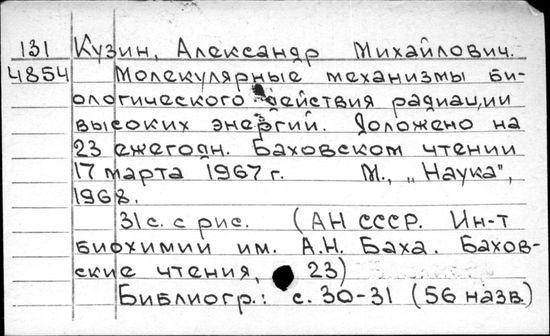 131 Кузин, Александр Михайлович.
4854 Молекулярные механизмы би-
ологического действия радиации
высоких энергий. Доложено на
23 ежегодн. Баховском чтении
17 марта 1967 г. М., „Наука",
1968.
31 с. с рис. (АН СССР. Ин-т
биохимии им. А.Н. Баха. Бахов-
ские чтения, 23)
Библиогр.: с. 30-31 (56 назв.)